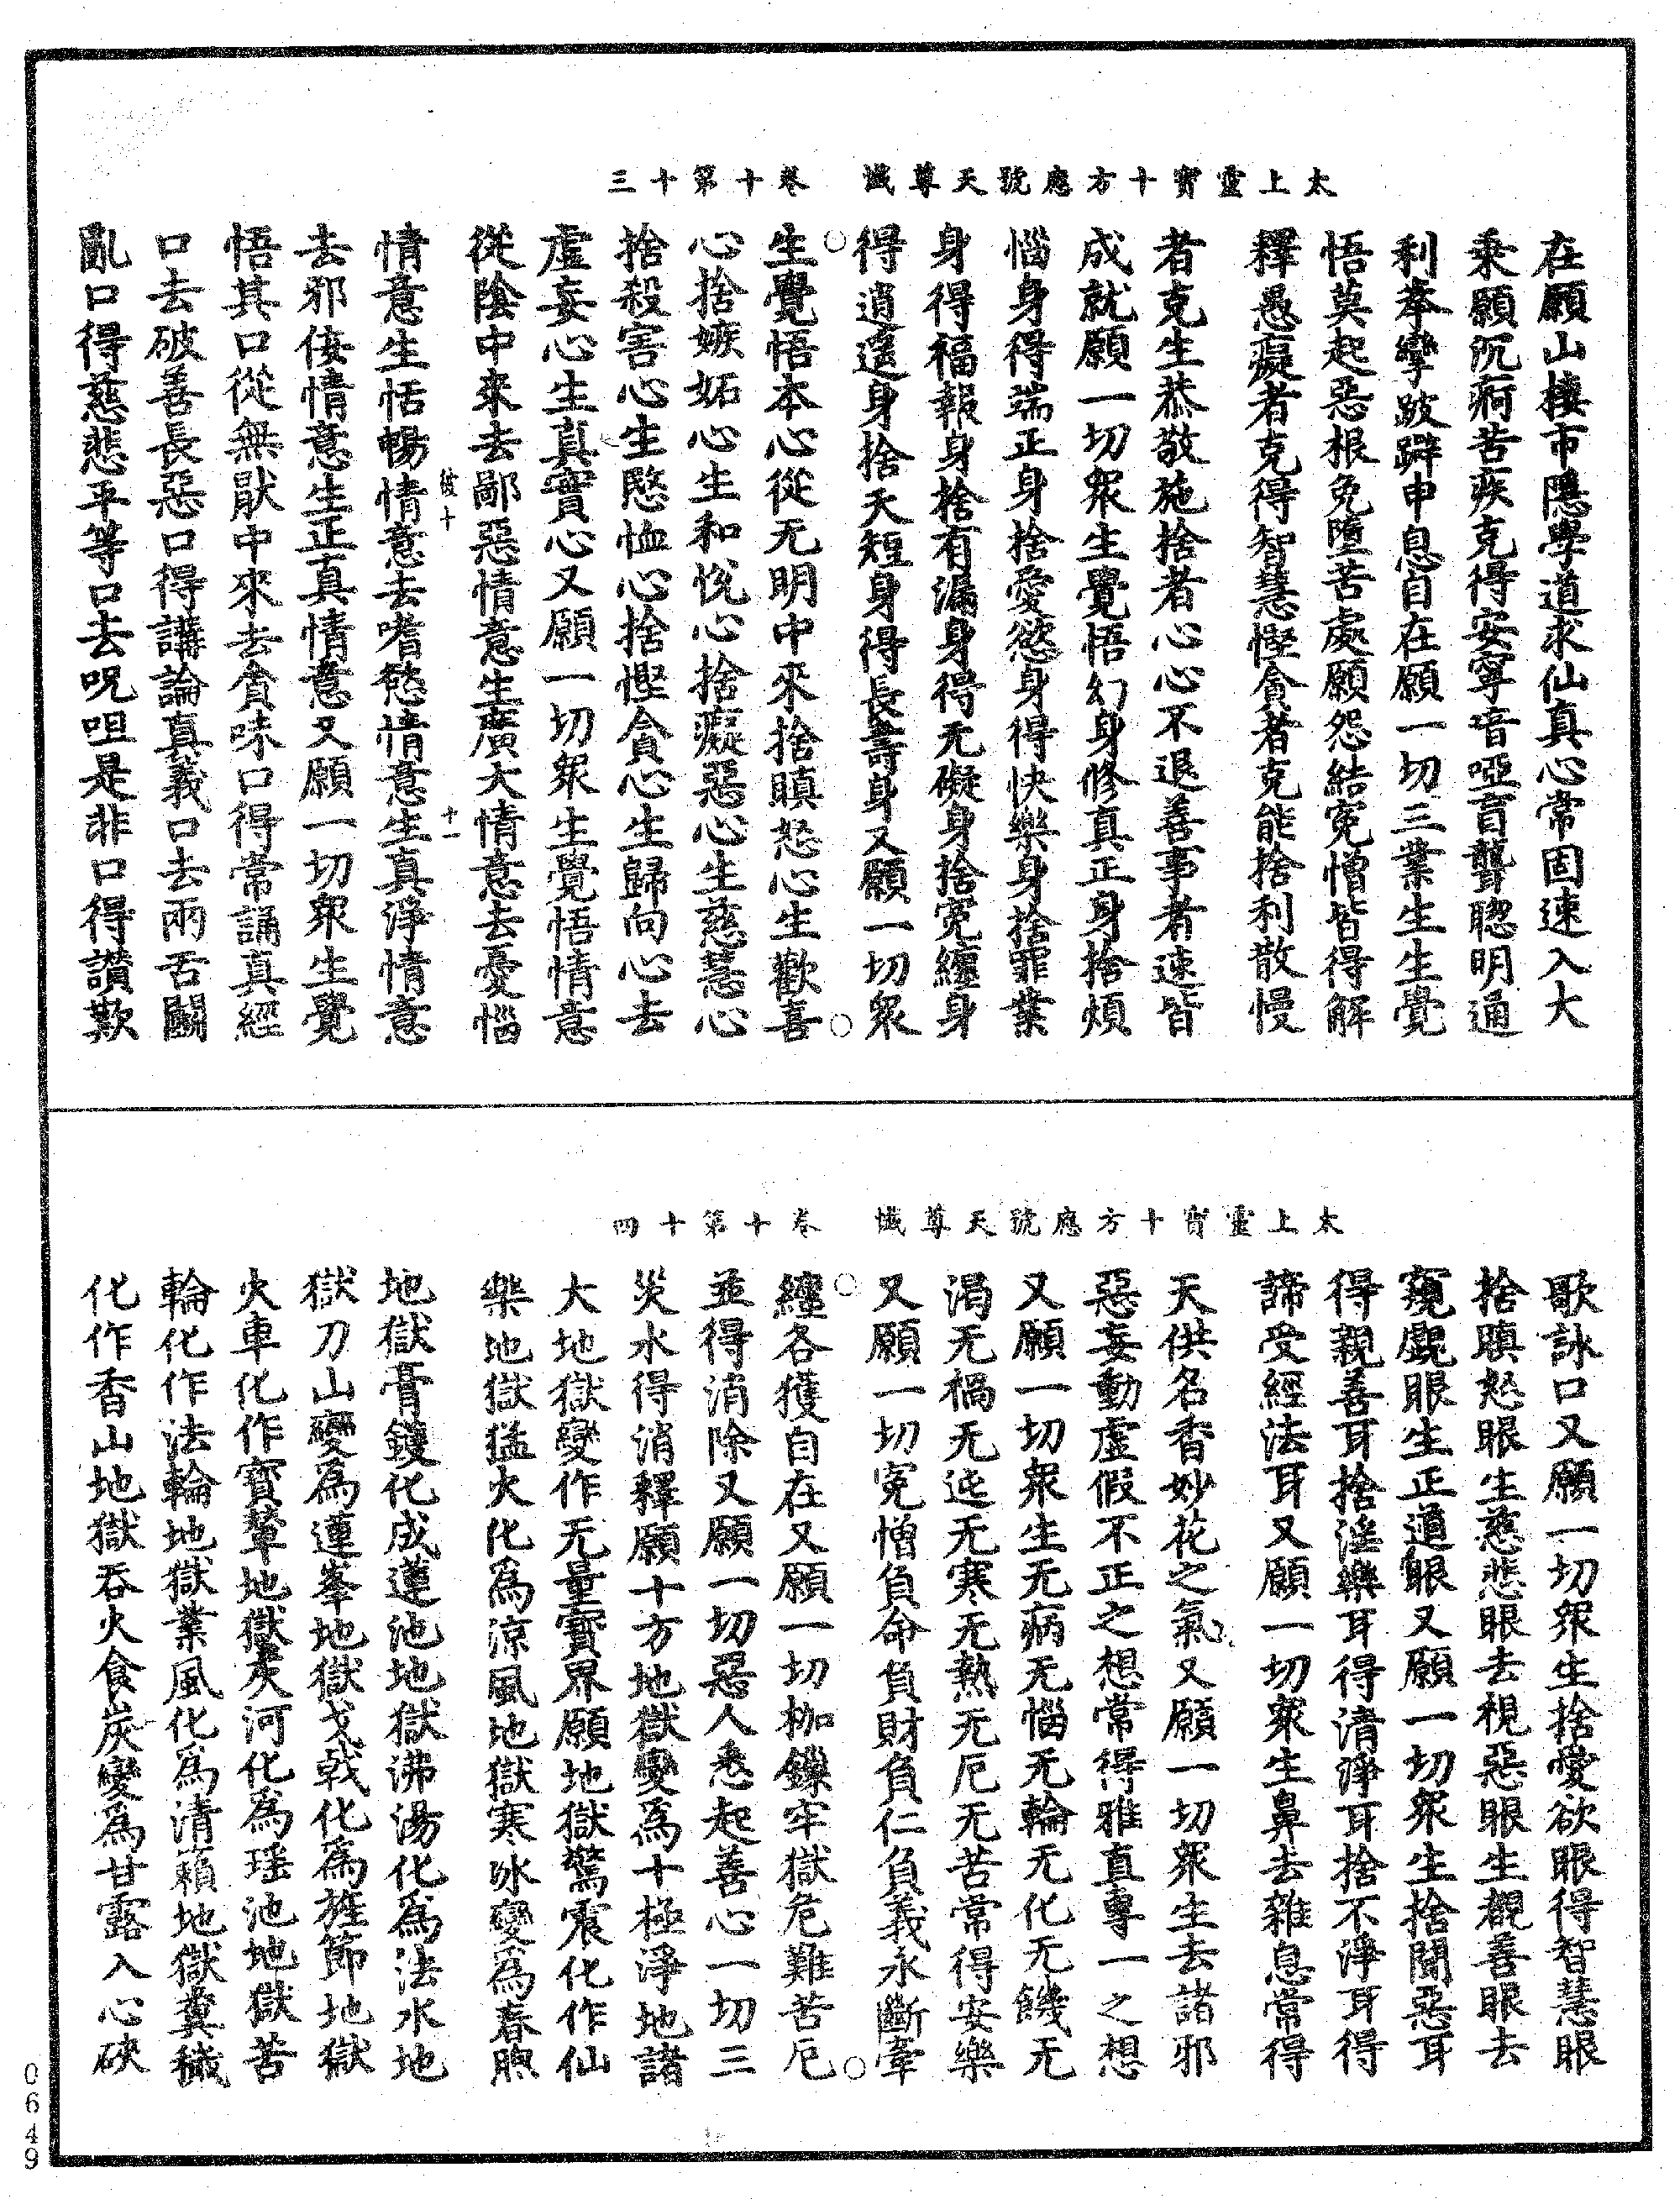 太上靈寶十方應號天尊懺　卷十第十三
在願山棲市隱學道求仙真心常固速入大
乘願沉痾苦疾克得安寧音啞盲聾聦明通
利拳攣跛躃申息自在願一切三業生生覺
悟莫起惡根免墮苦處願怨結寃憎皆得解
釋愚癡者克得智慧慳貪者克能捨利散慢
者克生恭敬施捨者心心不退善事者速皆
成就願一切衆生覺悟幻身修真正身捨煩
惱身得端正身捨愛慾身得快樂身捨罪業
身得福報身捨有漏身得无礙身捨寃纏身
得逍遥身捨夭短身得長壽身又願一切衆
生覺悟本心從无明中來捨瞋怒心生歡喜
心捨嫉妬心生和悅心捨癡惡心生慈慧心
捨殺害心生愍恤心捨慳貪心生歸向心去
虛妄心生真實心又願一切衆生覺悟情意
從陰中來去鄙惡情意生廣大情意去憂惱
情意生恬暢情意去嗜慾情意生真淨情意
彼十　十一
去邪倿情意生正真情意又願一切衆生覺
悟其口從無猒中來去貪味口得常誦真經
口去破善長惡口得講論真義口去兩舌鬭
亂口得慈悲平等口去呪咀是非口得讃歎
太上靈寶十方應號天尊懺　卷十第十四
歌詠口又願一切衆生捨愛欲眼得智慧眼
捨瞋怒眼生慈悲眼去視惡眼生觀善眼去
窺覷眼生正道眼又願一切衆生捨聞惡耳
得親善耳捨淫樂耳得清淨耳捨不淨耳得
諦受經法耳又願一切衆生鼻去雜息常得
天供名香妙花之氣又願一切衆生去諸邪
惡妄動虛假不正之想常得雅直專一之想
又願一切衆生无病无惱无輪无化无饑无
渴无禍无迍无寒无熱无厄无苦常得安樂
又願一切寃憎負命負財負仁負義永斷牽
纏各獲自在又願一切枷鏁牢獄危難苦厄
並得消除又願一切惡人悉起善心一切三
災水得消釋願十方地獄變爲十極淨地諸
大地獄變作无量寶界願地獄驚震化作仙
樂地獄猛火化爲涼風地獄寒冰變爲春煦
地獄膏鑊化成蓮池地獄沸湯化爲法水地
獄刀山變為連峯地獄戈戟化爲旌節地獄
火車化作寳輦地獄灰河化為瑶池地獄苦
輪化作法輪地獄業風化爲清籟地獄糞穢
化作香山地獄吞火食炭變爲甘露入心硤
0649